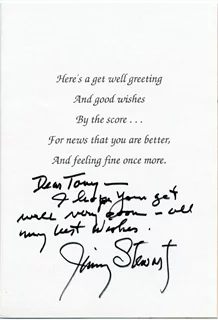 Here's a get well greeting
And good wishes
By the score . . .
For news that you are better,
And feeling fine once more.
Dear Tony —
I hope you get
well very soon — all
my best wishes.
Jimmy Stewart